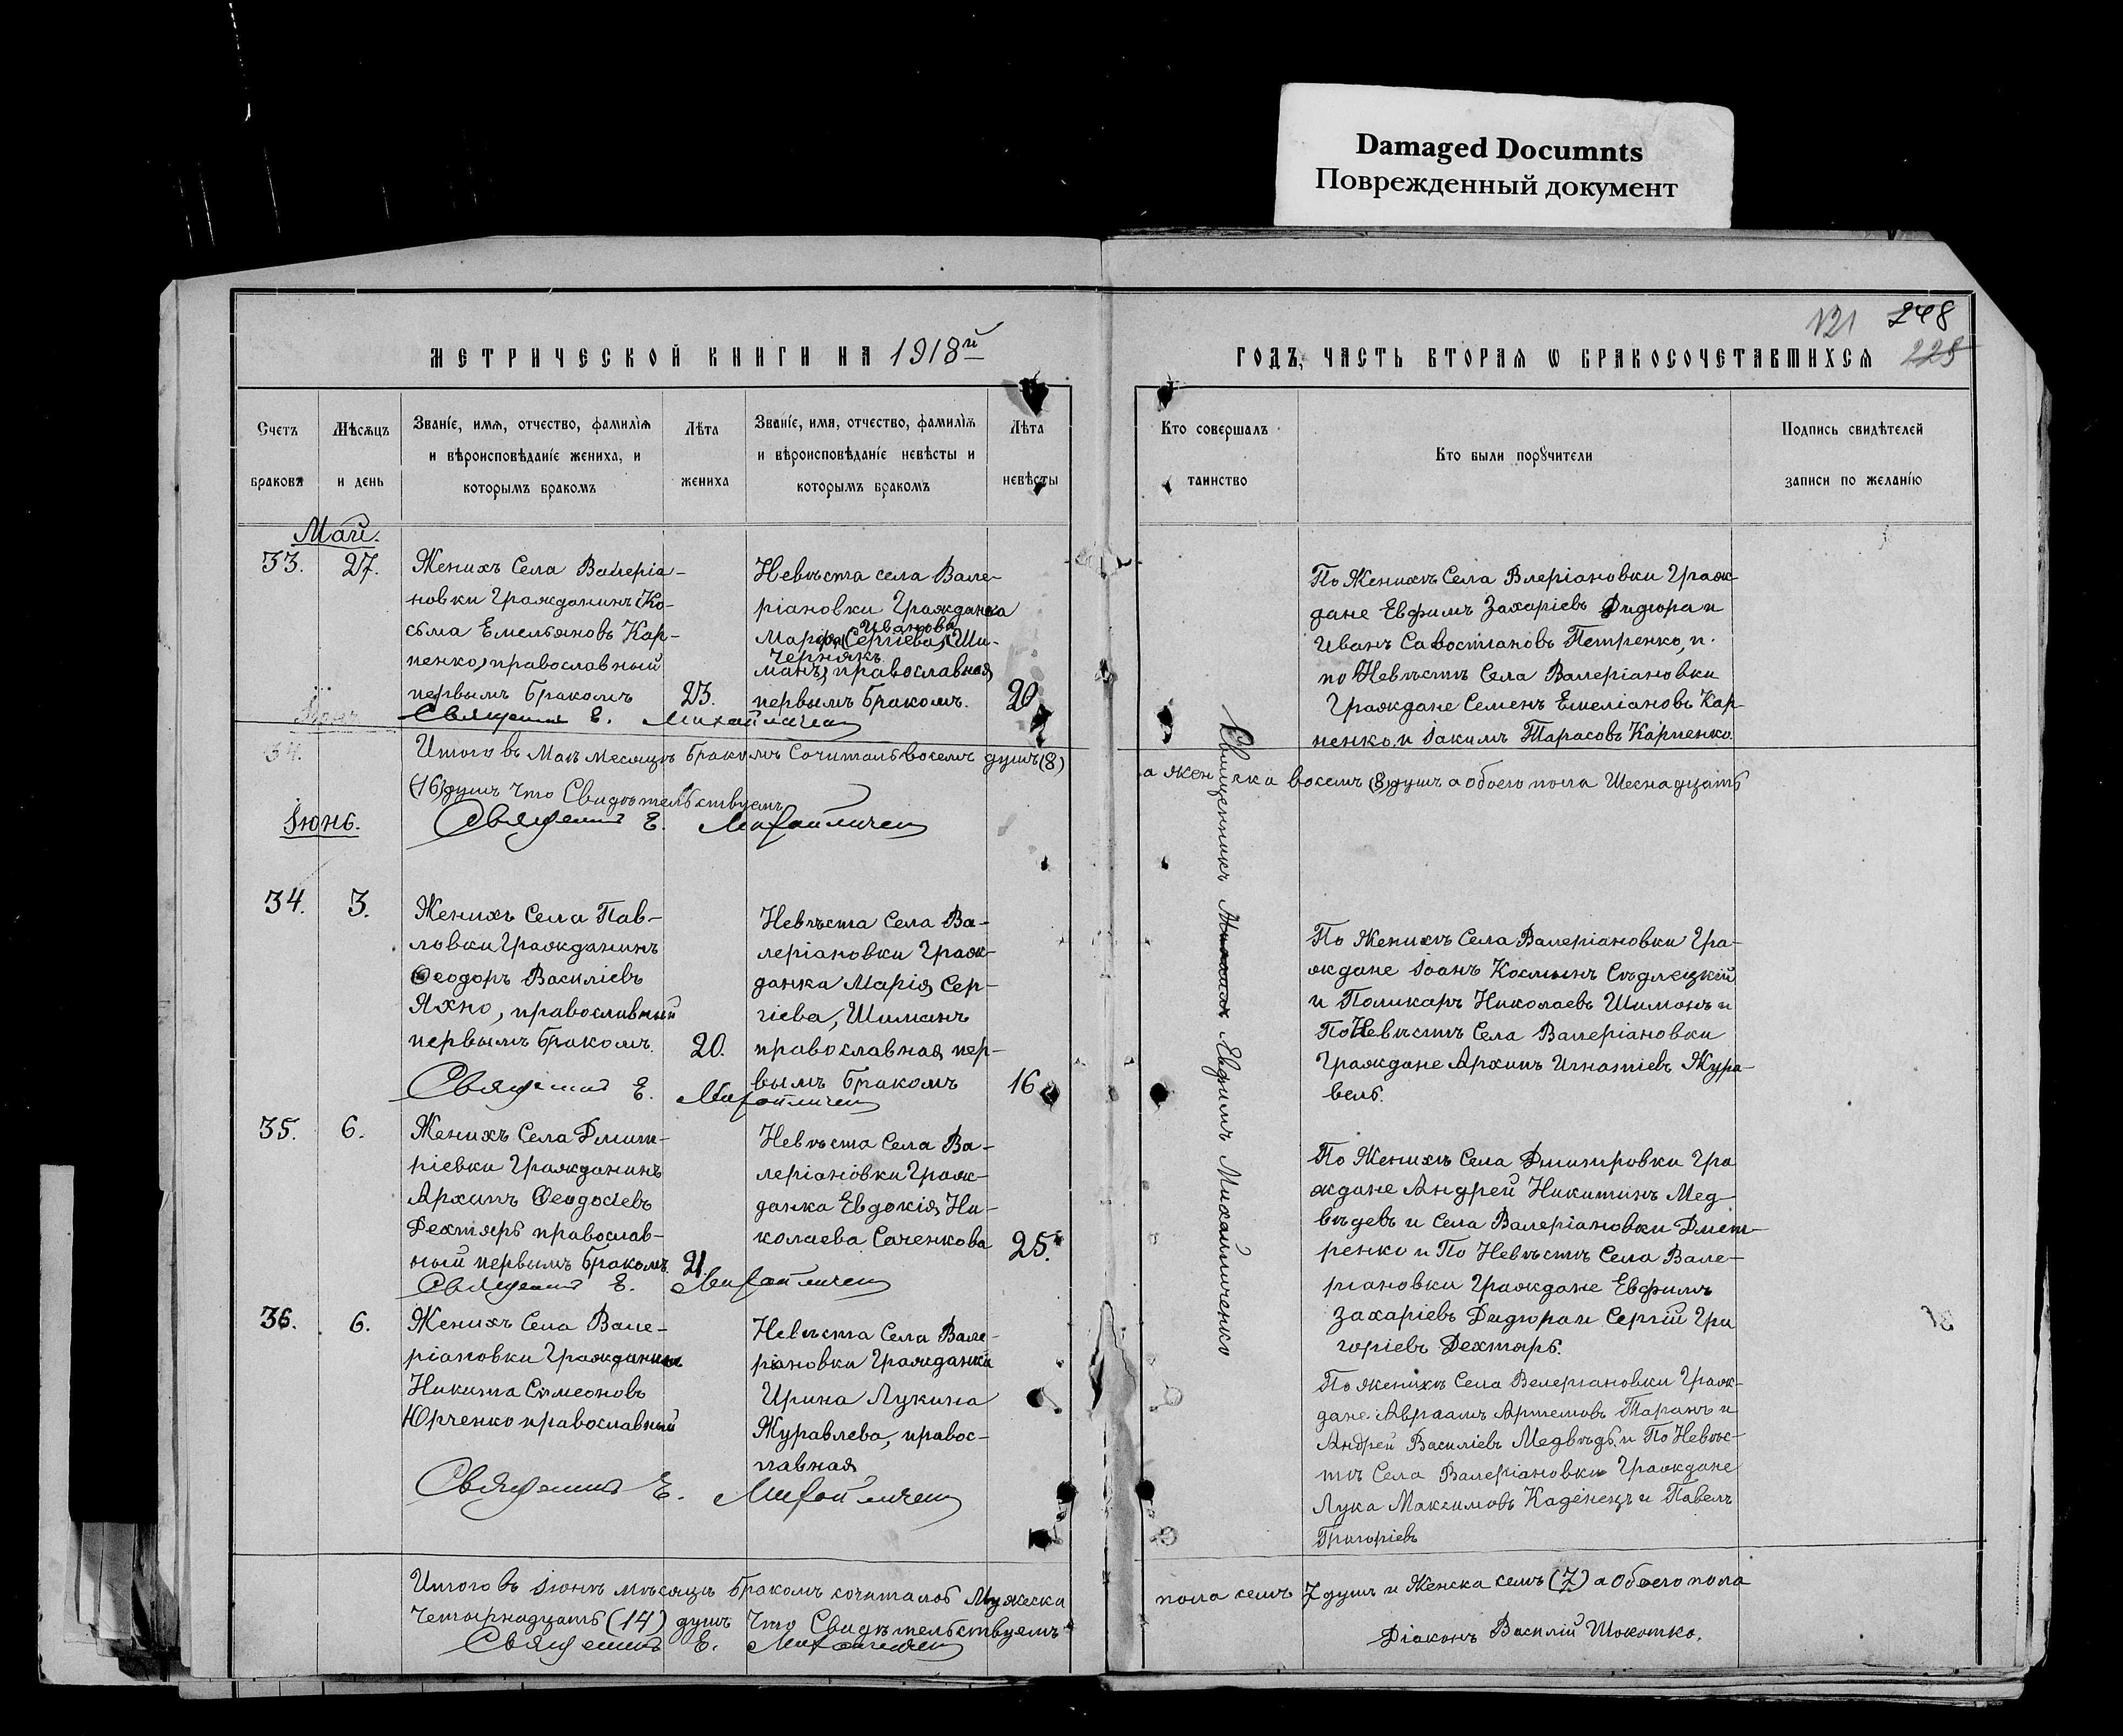 Damaged Documnts
Поврежденный документ
121 248
МЕТРИЧЕСКОЙ КНИГИ НА 1918й
ГОДЪ, ЧАСТЬ ВТОРАЯ Ѡ БРАКОСОЧЕТАВШИХСЯ 225
Счетъ
браковъ
Мѣсяцъ
и день
Званіе, имя, отчество, фамилія
и вѣроисповѣданіе жениха, и
которымъ бракомъ
Лѣта
жениха
Званіе, имя, отчество, фамилія
и вѣроисповѣданіе невѣсты и
которымъ бракомъ
Лѣта
невѣсты
Кто совершалъ
таинство
Кто были поручители
Подпись свидѣтелей
записи по желанію
Май.
33. 27.
Женихъ Села Валеріа-
новки Гражданинъ Ко-
сьма Емельяновъ Кар-
пенко, православный
первымъ бракомъ 23.
Невѣста села Вале-
ріановки Гражданка
Иванова
Марфа (Сергіева) (Ши-
Чернякъ
манъ) православная
первымъ бракомъ. 20
Священик Е. Михайличен
По Женихѣ Села Влеріановки Граж-
дане Евфимъ Захаріевъ Дидюра и
Иванъ Савостіановъ Петренко, и.
по Невѣстѣ Села Валеріановки
Граждане Семенъ Емеліановъ Кар-
пенко. и Іакимъ Тарасовъ Карпенко.
Іюнь
34.
Итого въ Маѣ месяцѣ бракомъ Сочиталсь восемъ душъ (8)
а женска восемъ (8) душъ а обоего пола Шеснадцать
(16) душъ Что Свидѣтельствуемъ
Священик Е. Михайличен
Іюнь.
34. 3.
Женихъ Села Пав-
ловки Гражданинъ
Ѳеодоръ Василіевъ
Яхно, православный
первымъ бракомъ. 20.
Невѣста Села Ва-
леріановки Граж-
данка Марія Сер-
гіева, Шиманъ
православная пер-
вымъ бракомъ 16
Священик Е. Михайличен
По Женихѣ Села Валеріановки Гра-
ждане Іоанъ Косминъ Сѣдлецкій
и Поликарпъ Николаевъ Шиманъ и
По Невѣстѣ Села Валеріановки
Граждане Архипъ Игнатіевъ Жура-
вель.
35. 6.
Женихъ Села Дмит-
ріевки Гражданинъ
Архипъ Ѳеодосіевъ
Дехтярь православ-
ный первымъ бракомъ. 21.
Невѣста Села Ва-
леріановки Граж-
данка Евдокія Ни-
колаева Саченкова 25.
Священик Е. Михайличен
По Женихѣ Села Дмитровки Гра
ждане Андрей Никитинъ Мед-
вѣдевъ и Села Валеріановки Дмит-
ренко и По Невѣстѣ Села Вале-
ріановки Граждане Евфимъ
Захаріевъ Дидюра и Сергій Гри
горіевъ Дехтярь.
36. 6.
Женихъ Села Вале-
ріановки Гражданинъ
Никита Симеоновъ
Юрченко православный
Невѣста Села Вале-
ріановки Гражданка
Ирина Лукина
Журавлева, правос-
лавная
Священик Е. Михайличен
По женихѣ Села Велеріановки Граж-
дане Авраамъ Артемовъ Таранъ и
Андрей Василіевъ Медвѣдь и По Невѣс-
тѣ Села Валеріановки Граждане
Лука Максимовъ Каденецъ и Павелъ
Григоріевъ
Священникъ Евфимъ Михайличенко
Итого въ Іюнѣ мѣсяцѣ бракомъ сочиталсь Мужеска
пола семъ 7 душъ и Женска семъ (7) а Обоего пола
Четырнадцать (14) душъ Что Свидѣтельствуемъ
Священик Е. Михайличен
Діаконъ Василій Шокотко.